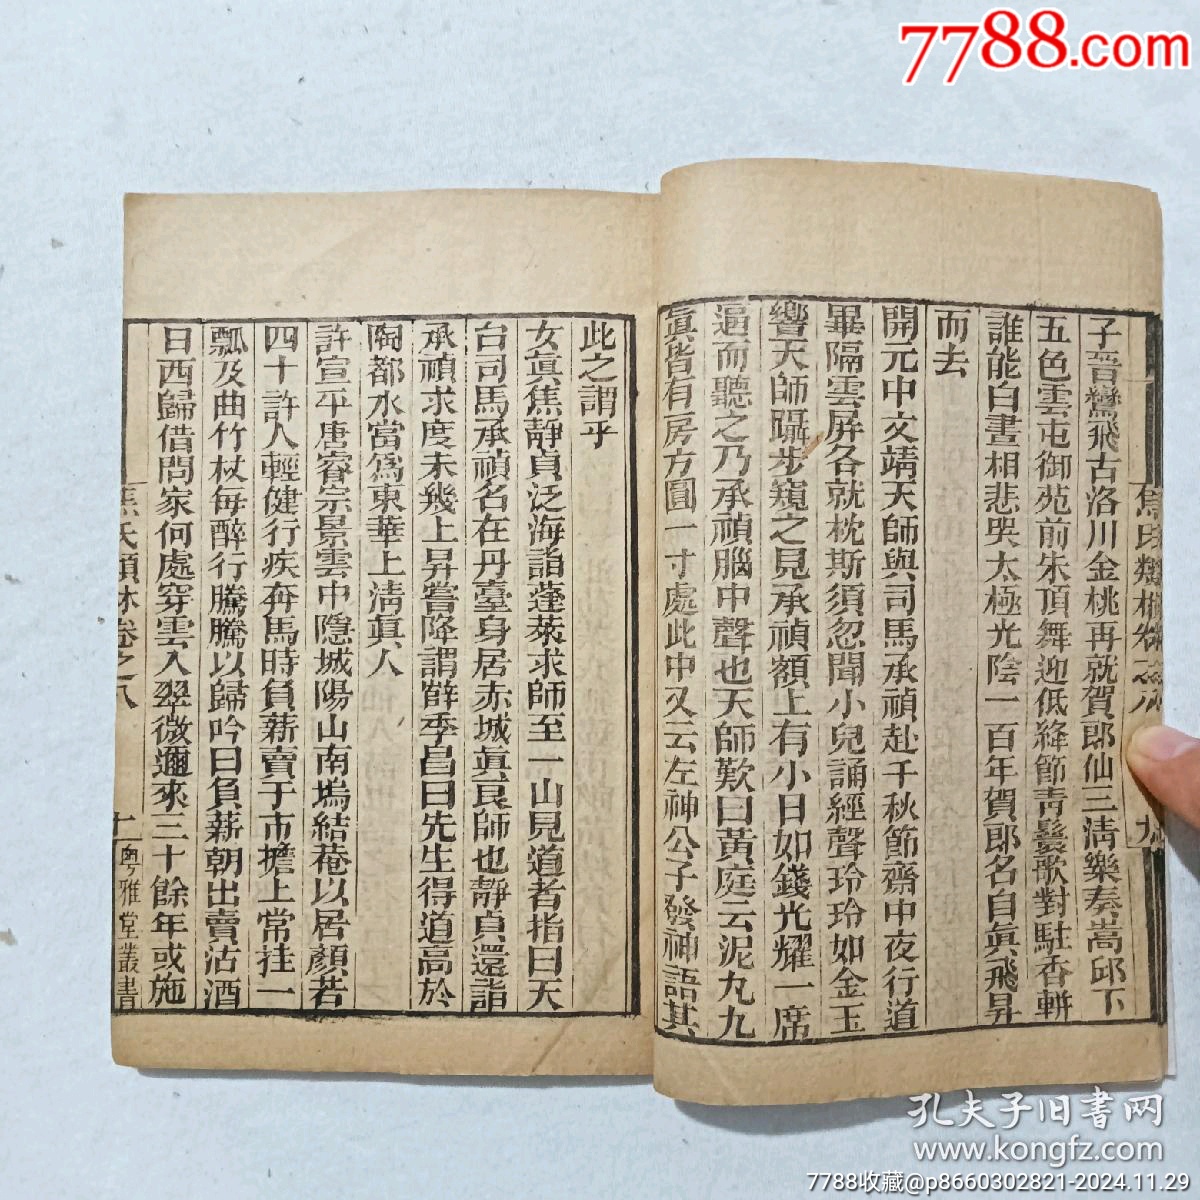 7788.com
子晉鸞飛古洛川金桃再就賀郎仙三淸樂奏嵩邱下
五色雲屯御苑前朱頂舞迎低絳節靑鬟歌對駐香輧
誰能白晝相悲哭太極光陰一百年賀郎名自眞飛昇
而去
開元中文靖天師與司馬承禎赴千秋節齋中夜行道
畢隔雲屏各就枕斯須忽聞小兒誦經聲玲玲如金玉
響天師躡步窺之見承禎額上有小日如錢光耀一席
逼而聽之乃承禎腦中聲也天師歎曰黃庭云泥九九
眞皆有房方圓一寸處此中又云左神公子發神語其
此之謂乎
女眞焦靜貞泛海詣蓬萊求師至一山見道者指曰天
台司馬承禎名在丹臺身居赤城眞良師也靜貞還詣
承禎求度未幾上昇嘗降謂薛季昌曰先生得道高於
陶都水當爲東華上淸眞人
許宣平唐睿宗景雲中隱城陽山南塢結菴以居顏若
四十許人輕健行疾奔馬時負薪賣于市擔上常挂一
瓢及曲竹杖每醉行騰騰以歸吟曰負薪朝出賣沽酒
日西歸借問家何處穿雲入翠微邇來三十餘年或施
焦氏類林卷之八
十
粤雅堂叢書
孔夫子旧书网
www.kongfz.com
7788收藏@p8660302821-2024.11.29